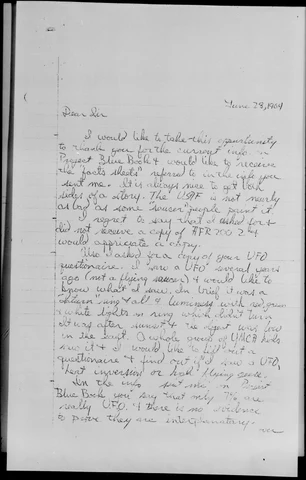 June 28, 1964
Dear Sir
I would like to take this opportunity
to thank you for the current info on
Project Blue Book & would like to receive
the "facts sheets" referred to in the info you
sent me. It is always nice to get both
sides of a story. The USAF is not nearly
as bad as some people paint it.
I regret to say that I asked for &
did not receive a copy of AFR 200-2 &
would appreciate a copy.
Also I asked for a copy of your UFO
questionaire. I saw a UFO several years
ago (not a flying saucer) & would like to
know what I saw. In brief it was a
ring & all & luminess with red, green
& white lights on ring which didn't turn
It was after sunset & the object was low
in the east. A whole group of YMCA kids
saw it & I would like to fill out a
questionaire & find out if I saw a UFO,
heat inversion or
In the info sent me on Project
Blue Book you say that only are
really UFO. & there is no evidence
to prove they are interplanetary.